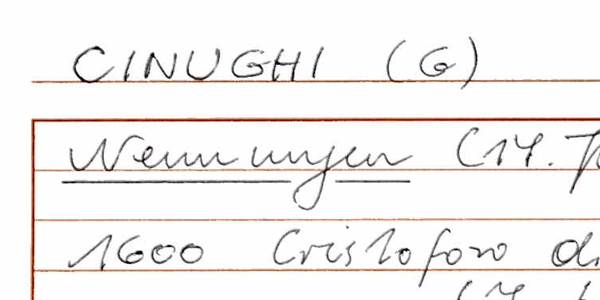 CINUGHI (G)
Nennungen (14.
1600 Cristoforo di